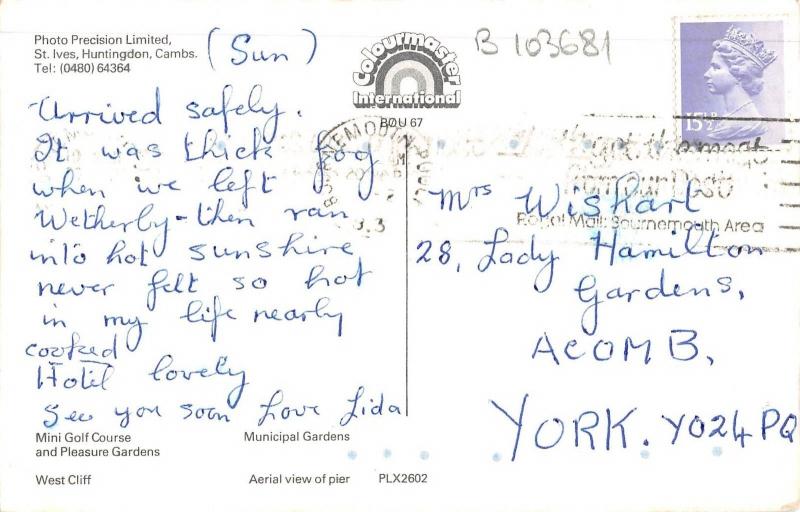 Photo Precision Limited,
St. Ives, Huntingdon, Cambs.
Tel: (0480) 64364
(Sun)
Colourmaster
International
BOU 67
B 103681
15½P
Arrived safely.
It was thick fog
when we left
Wetherby - then ran
into hot sunshire
never felt so hot
in my life nearly
cooked
Hotel lovely
See you soon Love Lida
BOURNEMOUTH-POOLE
Postal Mail: Bournemouth Area
Mrs Wishart
28, Lady Hamilton
Gardens,
ACOMB,
YORK. YO24PQ
Mini Golf Course
and Pleasure Gardens
Municipal Gardens
West Cliff
Aerial view of pier
PLX2602